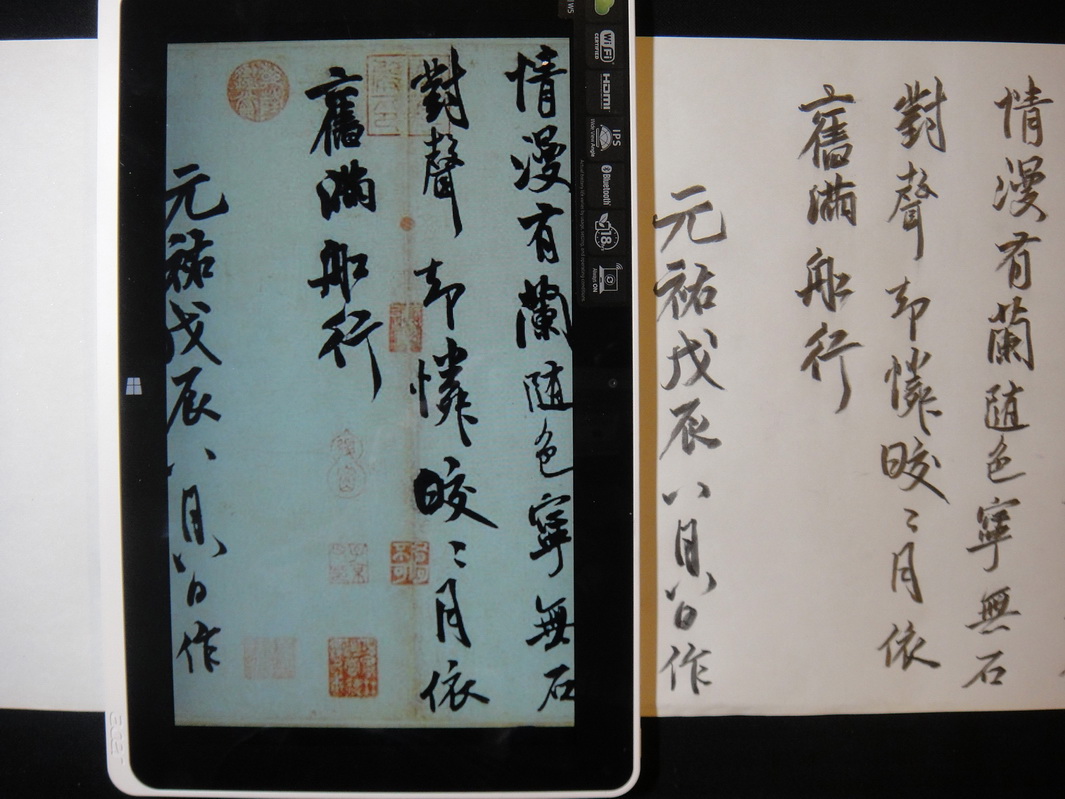 情漫有蘭隨色寧無石
對聲却憐皎〻月依
舊滿船行
元祐戊辰八月八日作
WiFi
CERTIFIED
HDMI
IPS
Wide View Angle
Bluetooth
18
Always ON
情漫有蘭隨色寧無石
對聲却憐皎〻月依
舊滿船行
元祐戊辰八月八日作